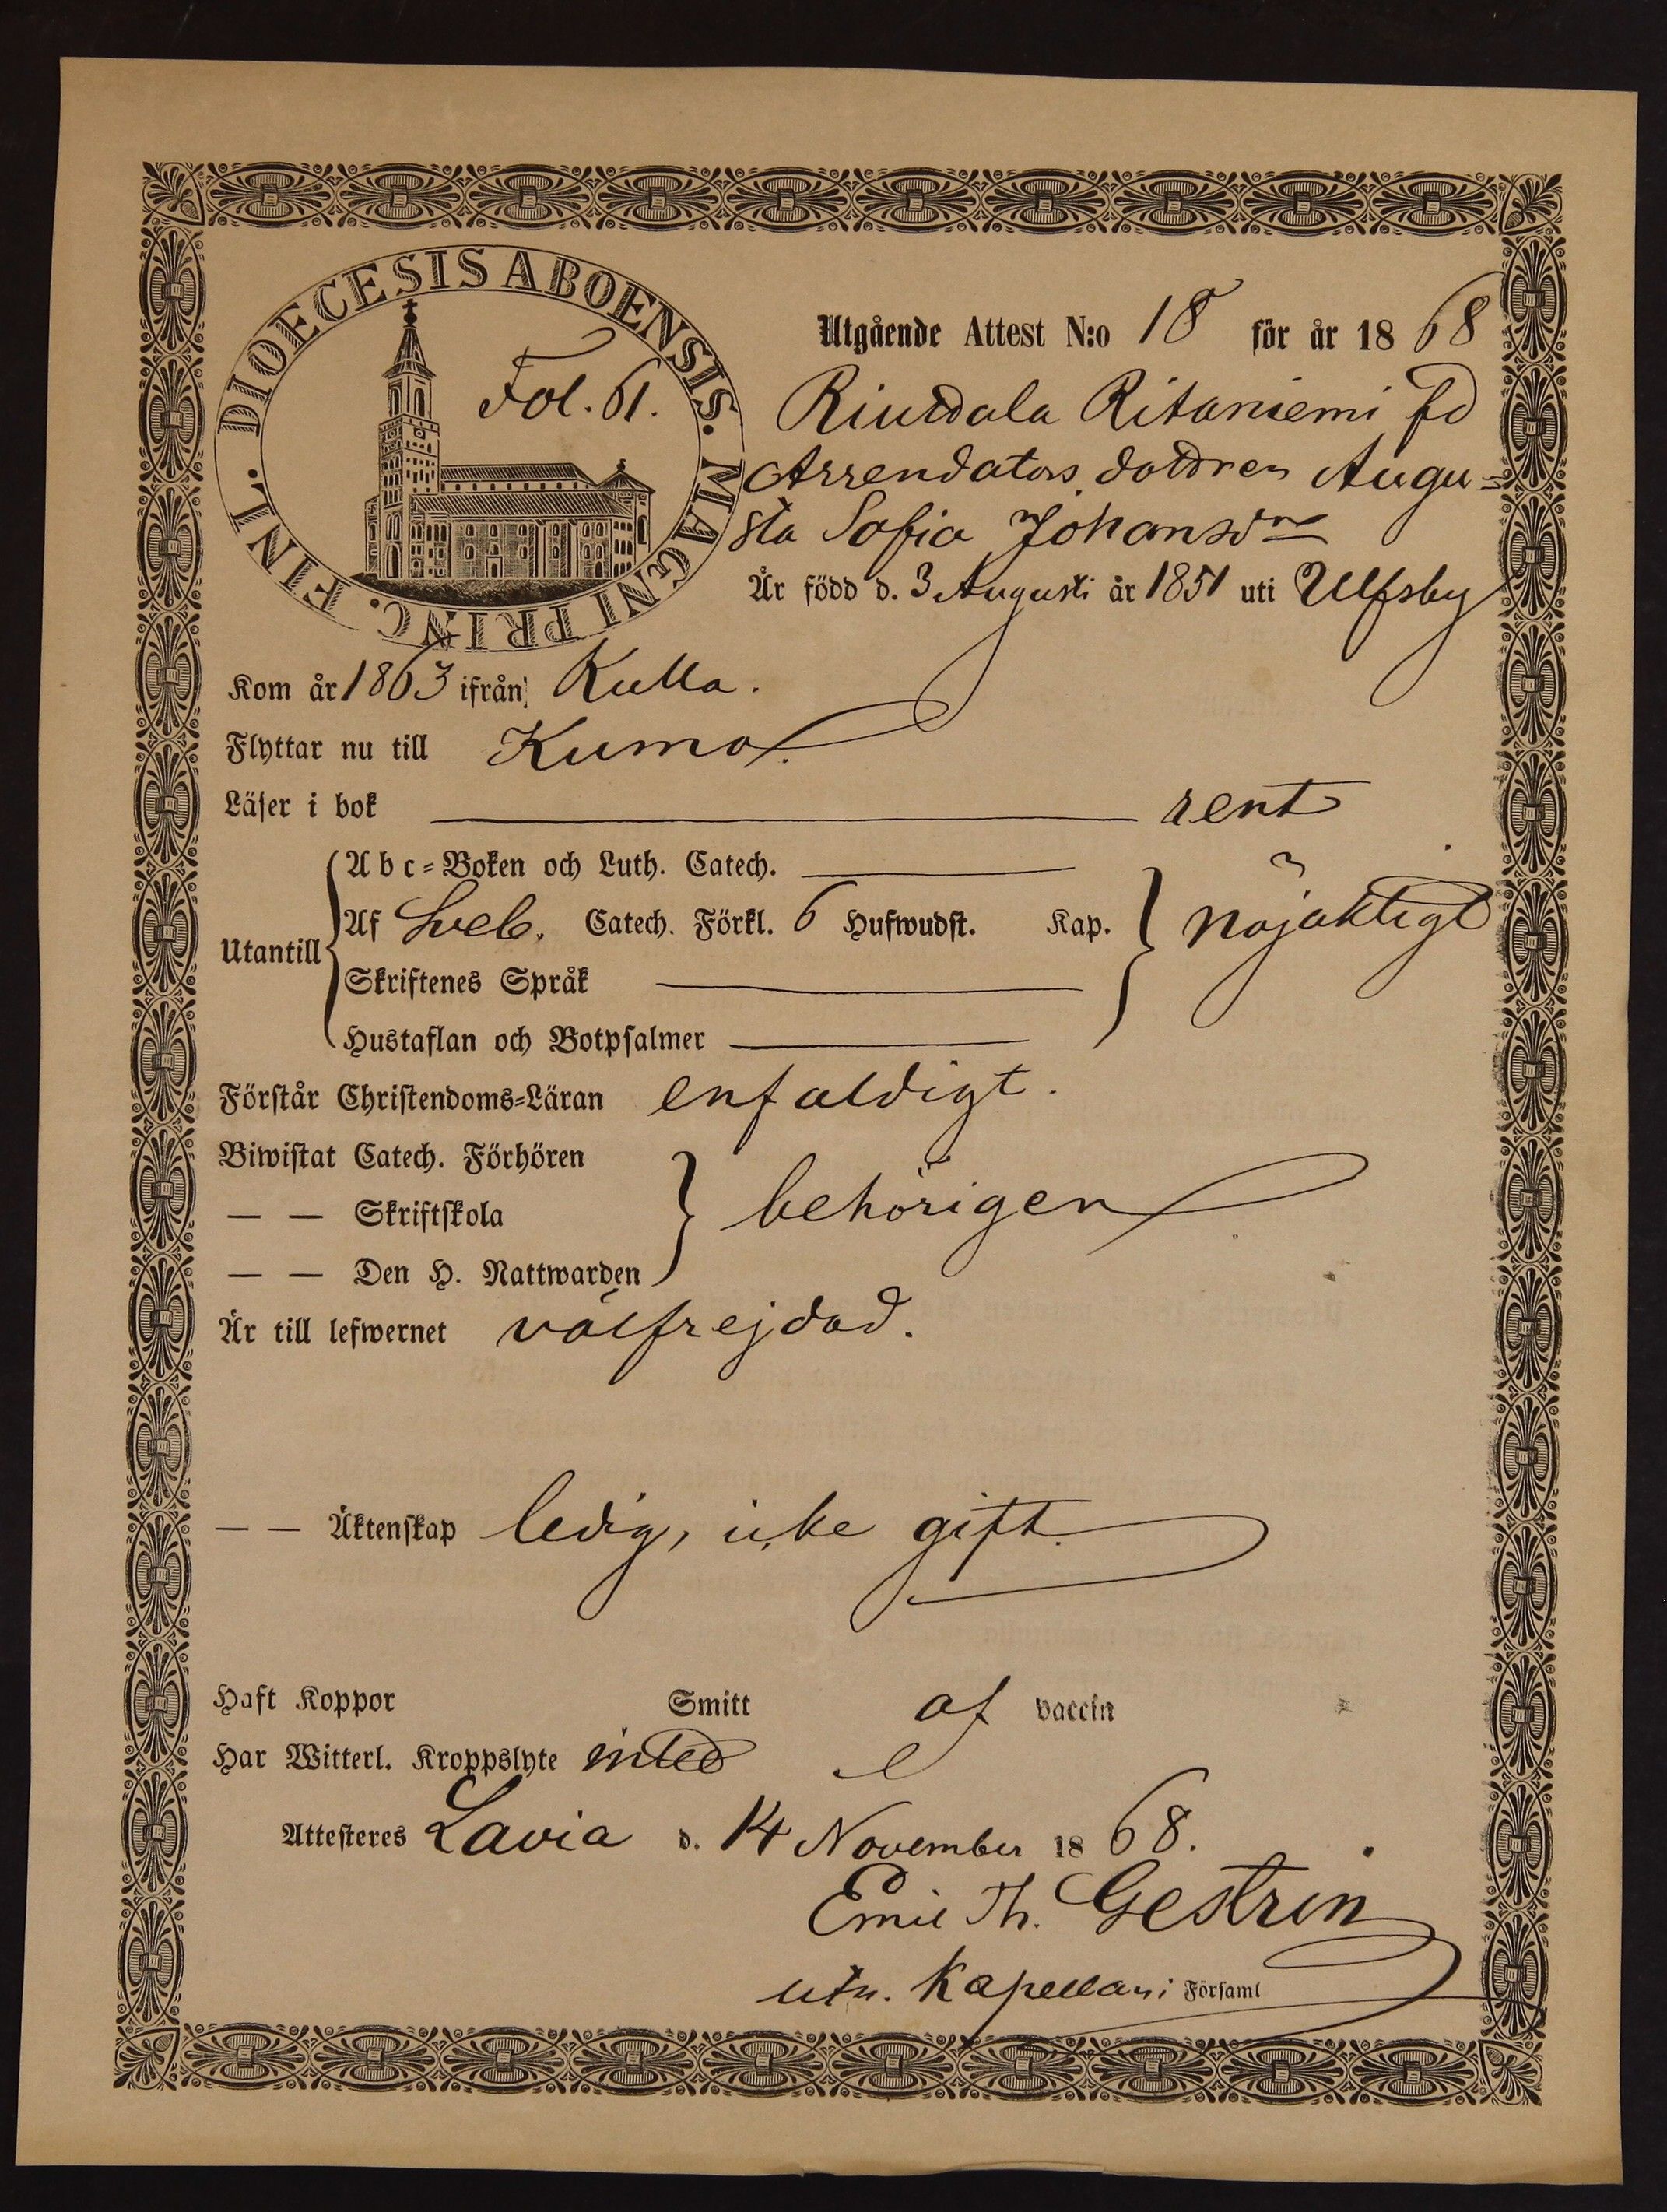 DIOECESIS ABOENSIS. MAGNI PRINC. FINL.
Fol. 61.
Utgående Attest N:o 18 för år 1868
Riuttala Ritaniemi fd
Arrendators dottren Augu-
sta Sofia Johansdr
Är född d. 3 Augusti år 1851 uti Ulfsby
Kom år 1863 ifrån Kulla.
Flyttar nu till Kumo.
Läser i bok rent
Utantill
Abc-Boken och Luth. Catech.
Af Sveb. Catech. Förkl. 6 Hufwudst. Kap. nöjaktigt
Skriftenes Språk
Hustaflan och Botpsalmer
Förstår Christendoms-Läran enfaldigt.
Biwistat Catech. Förhören
— — Skriftskola behörigen
— — Den H. Nattwarden
Är till lefwernet välfrejdad.
— — Äktenskap ledig, icke gift.
Haft Koppor Smitt af vaccin
Har Witterl. Kroppslyte intet
Attesteres Lavia d. 14 November 1868.
Emil Th. Gestrin
Kapellan i Församl